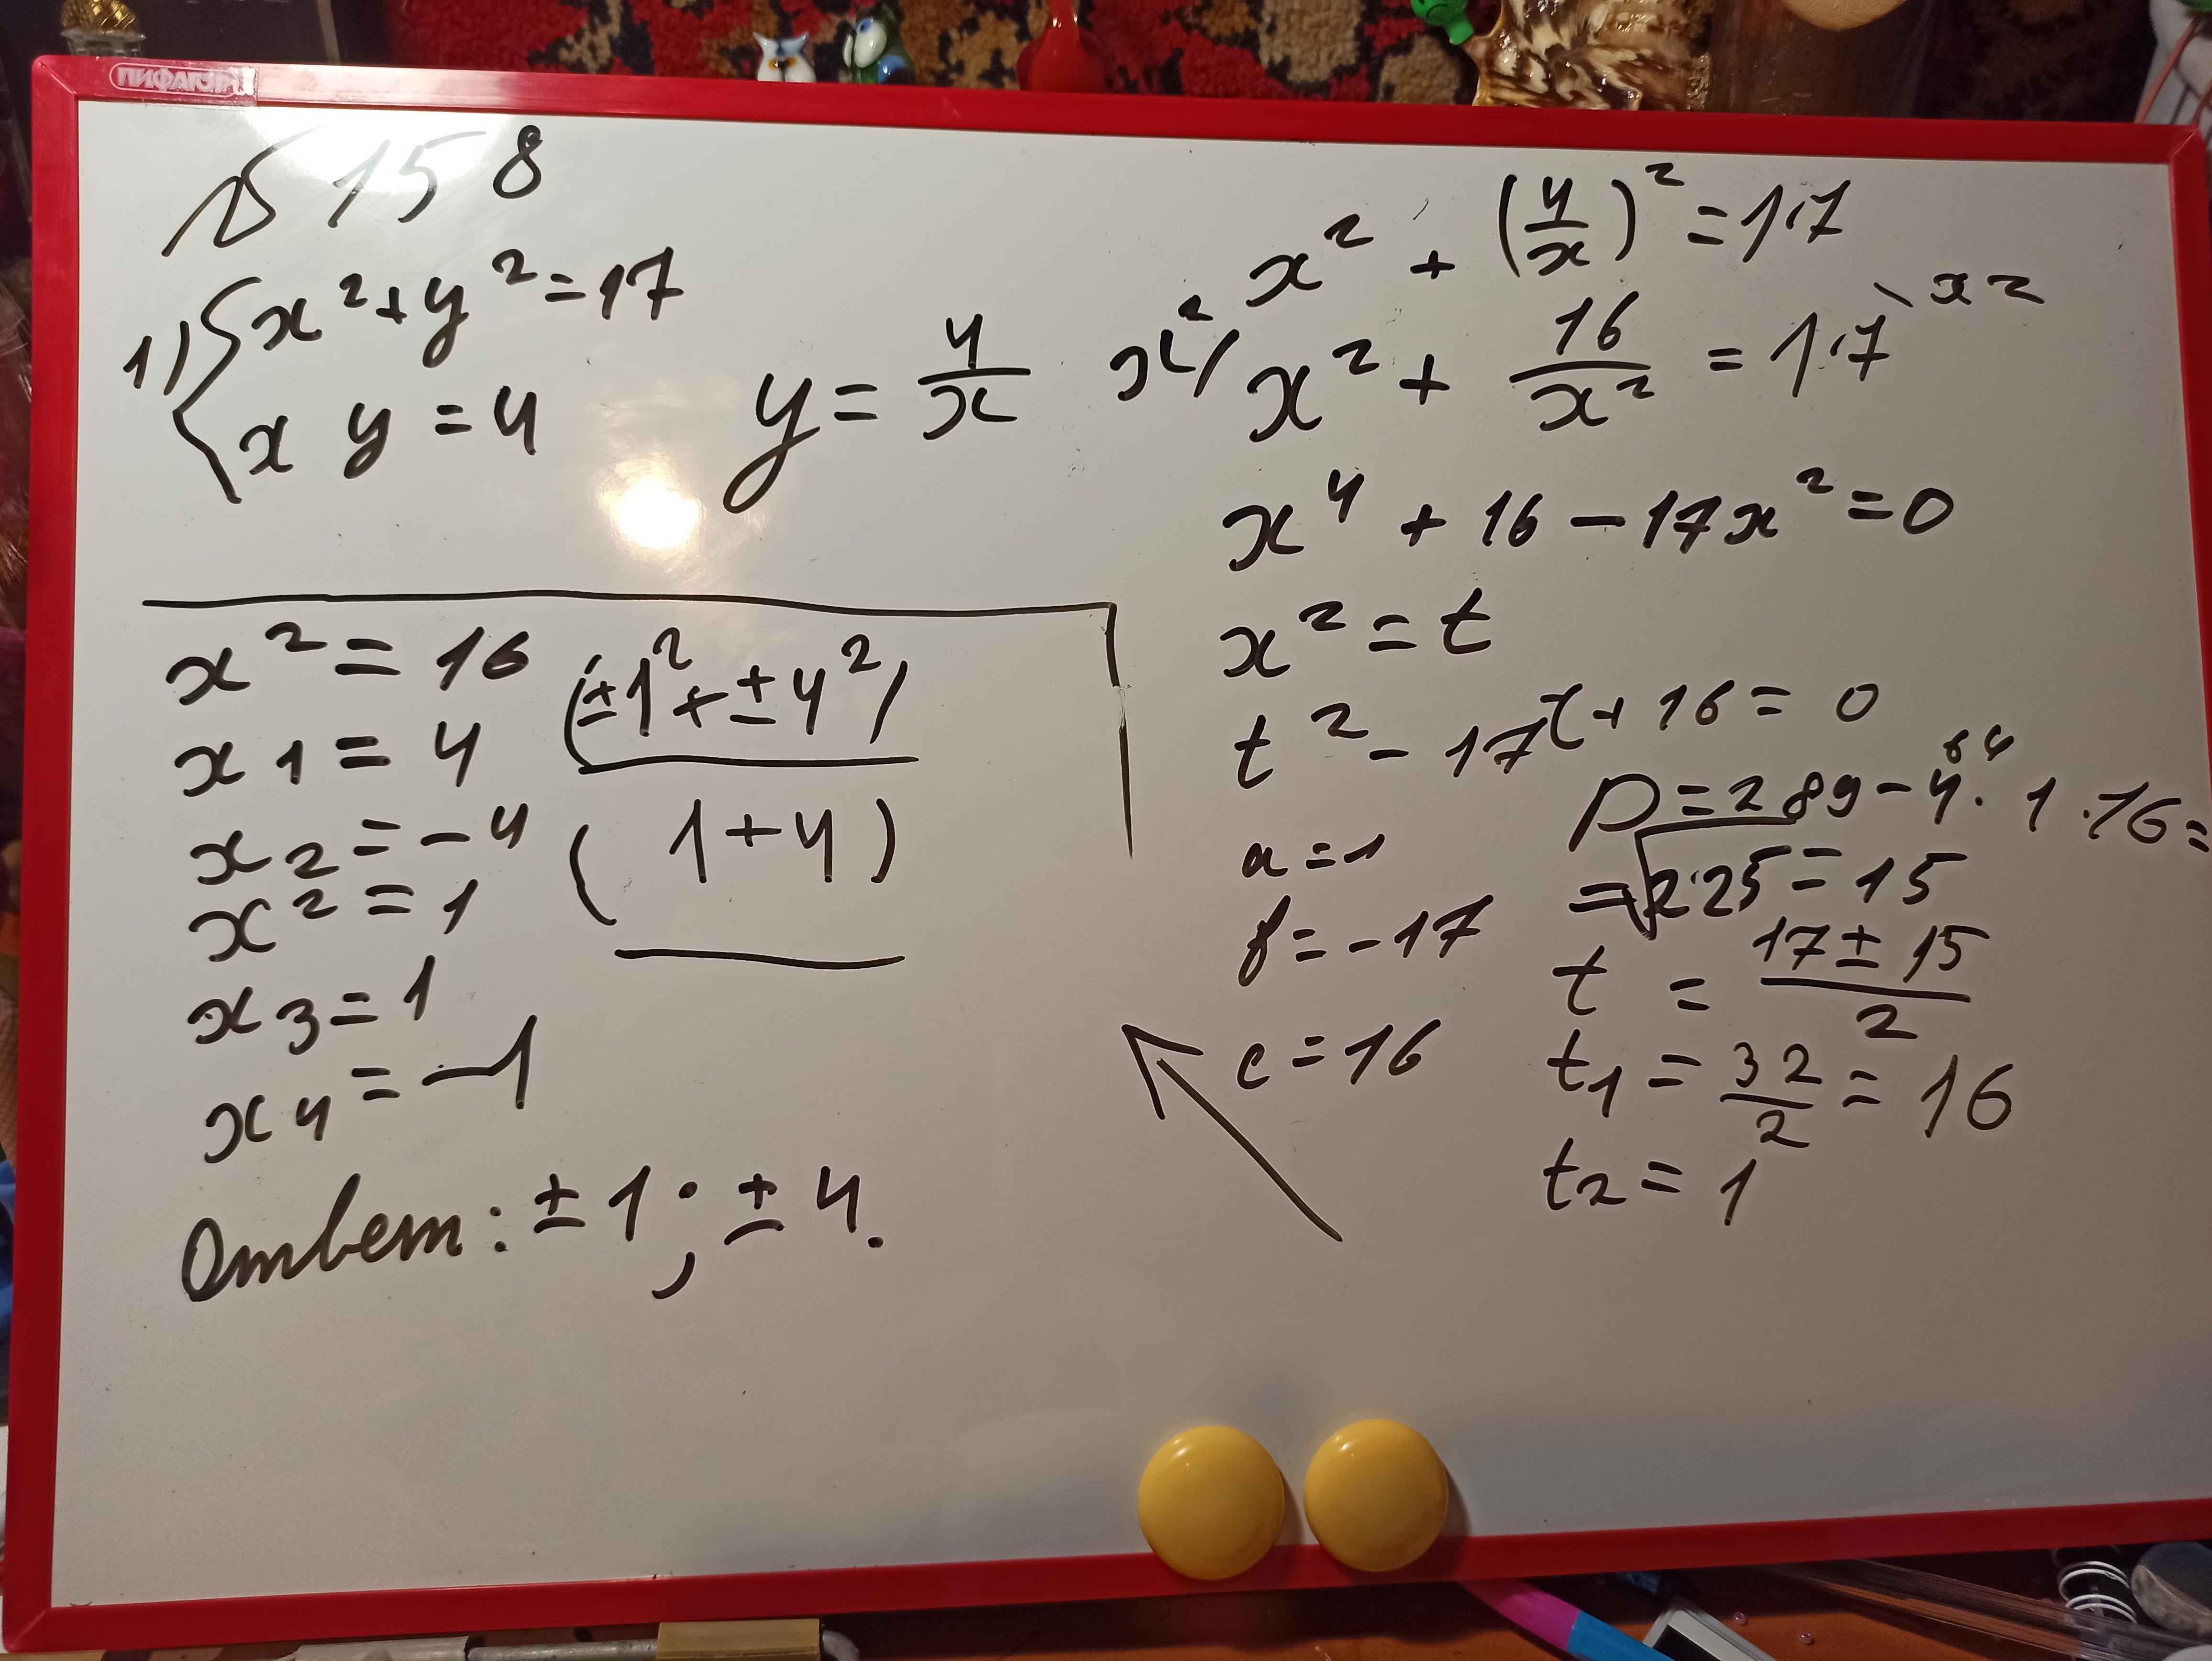 ПИФАГОР
№ 158
1) { x² + y² = 17
x y = 4
y = 4/x
x² + (4/x)² = 17
x²/ x² + 16/x² = 17 \ x2
x⁴ + 16 - 17x² = 0
x² = t
t² - 17t + 16 = 0
a = 1
b = -17
c = 16
D = 289 - 4 · 1 · 16 =
64
= √225 = 15
t = (17 ± 15)/2
t1 = 32/2 = 16
t2 = 1
x² = 16
x1 = 4
x2 = -4
x² = 1
x3 = 1
x4 = -1
(±1² + ±4²)
(1 + 4)
Ответ: ±1; ±4.